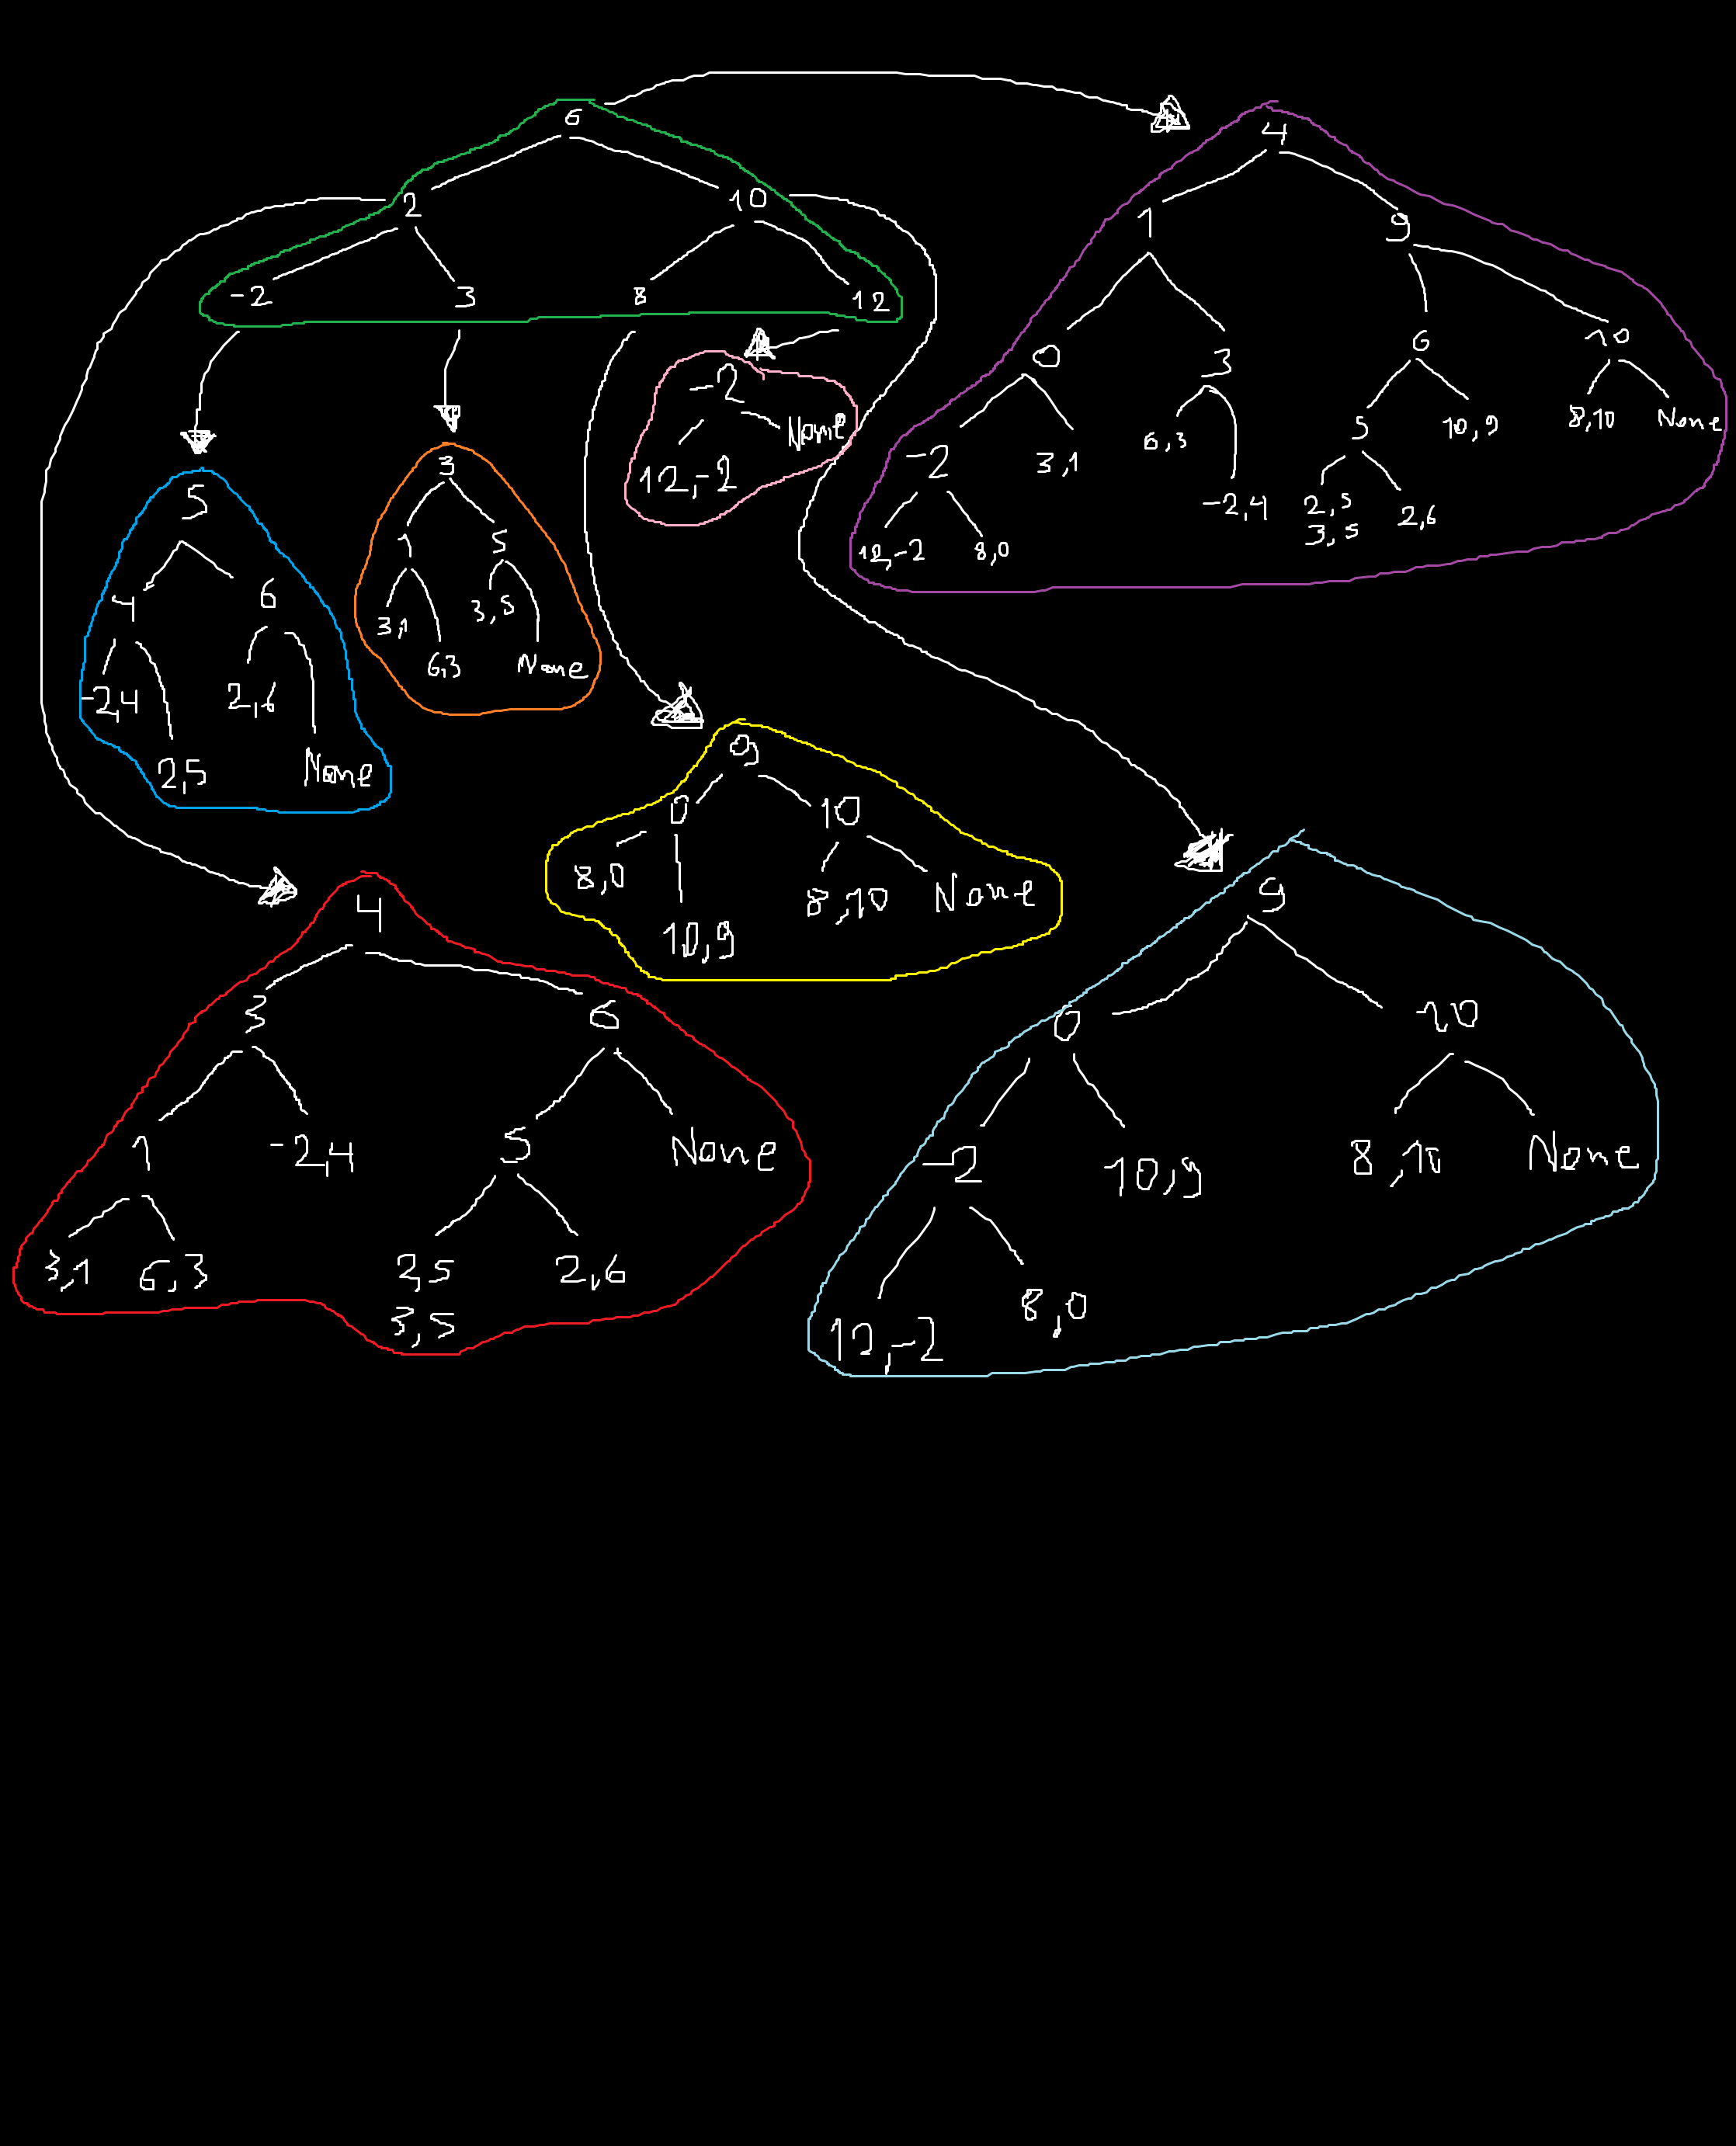 6
2
10
-2
3
8
12
4
1
9
0
3
6
10
-2
3,1
6,3
-2,4
5
10,9
8,10
None
12,-2
8,0
2,5
3,5
2,6
-2
None
12,-2
5
4
6
-2,4
2,5
2,6
None
3
1
5
3,1
6,3
3,5
None
9
0
10
8,0
10,9
8,10
None
4
3
6
1
-2,4
5
None
3,1
6,3
2,5
3,5
2,6
9
0
10
-2
10,9
8,10
None
12,-2
8,0